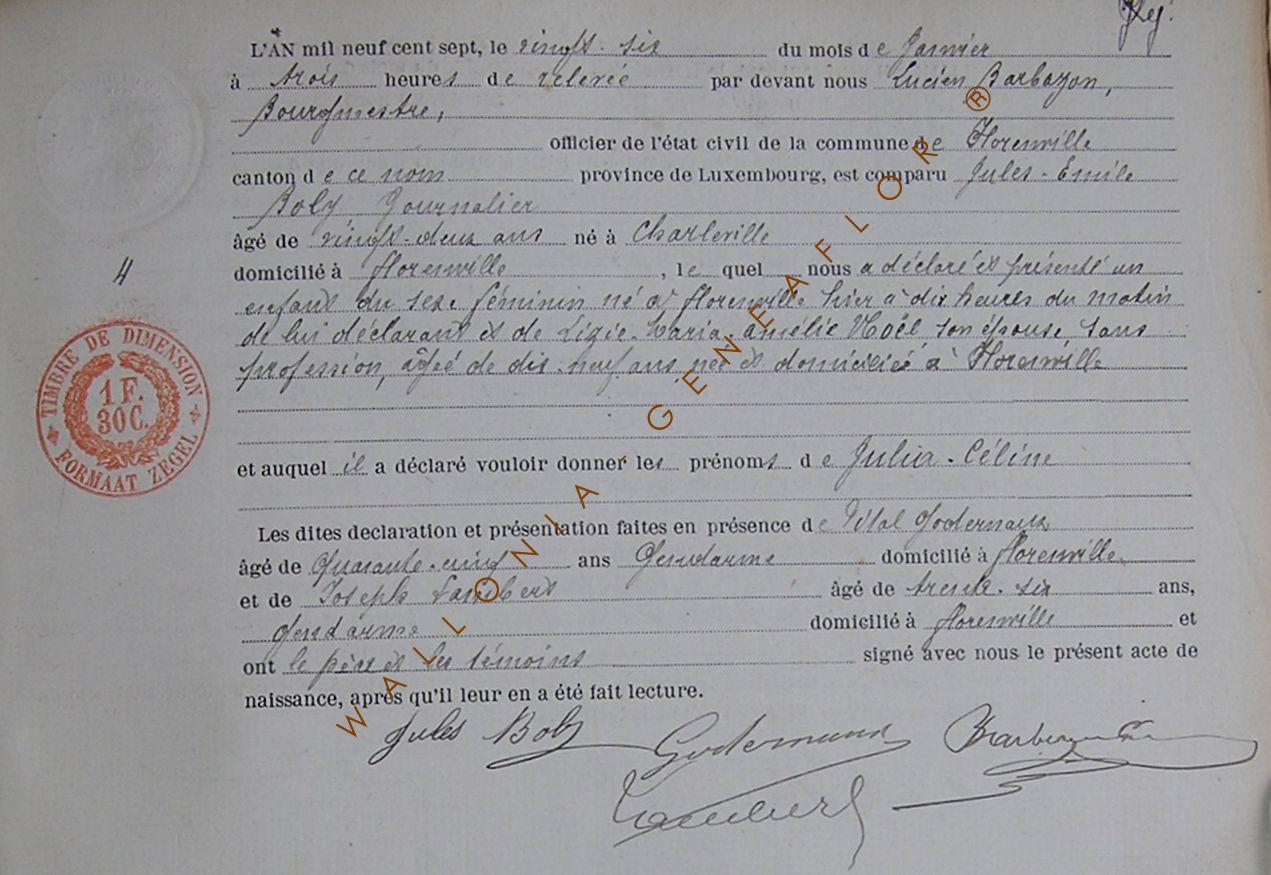 L'AN mil neuf cent sept, le vingt-six du mois de Janvier
à trois heures de relevée par devant nous Lucien Barbazon,
Bourgmestre,
officier de l'état civil de la commune de Florenville
canton de ce nom province de Luxembourg, est comparu Jules-Emile
Boly Journalier
âgé de vingt-deux ans né à Charleville
4
domicilié à Florenville, lequel nous a déclaré et présenté un
enfant du sexe féminin né à Florenville hier à dix heures du matin
de lui déclarant et de Maria-Amélie Noël son épouse, sans
profession, âgée de dix-neuf ans née et domiciliée à Florenville
TIMBRE DE DIMENSION
1 F.
30 C.
FORMAAT ZEGEL
et auquel il a déclaré vouloir donner les prénoms de Julia-Céline
Les dites declaration et présentation faites en présence de Vital Godernaux
âgé de Quarante-cinq ans Gendarme domicilié à Florenville
et de Joseph Lambert âgé de trente-six ans,
gendarme domicilié à Florenville et
ont le père et les témoins signé avec nous le présent acte de
naissance, après qu'il leur en a été fait lecture.
Jules Boly Godernaux Barbazon
Lambert
WALLONIA GENEAFLOR ®